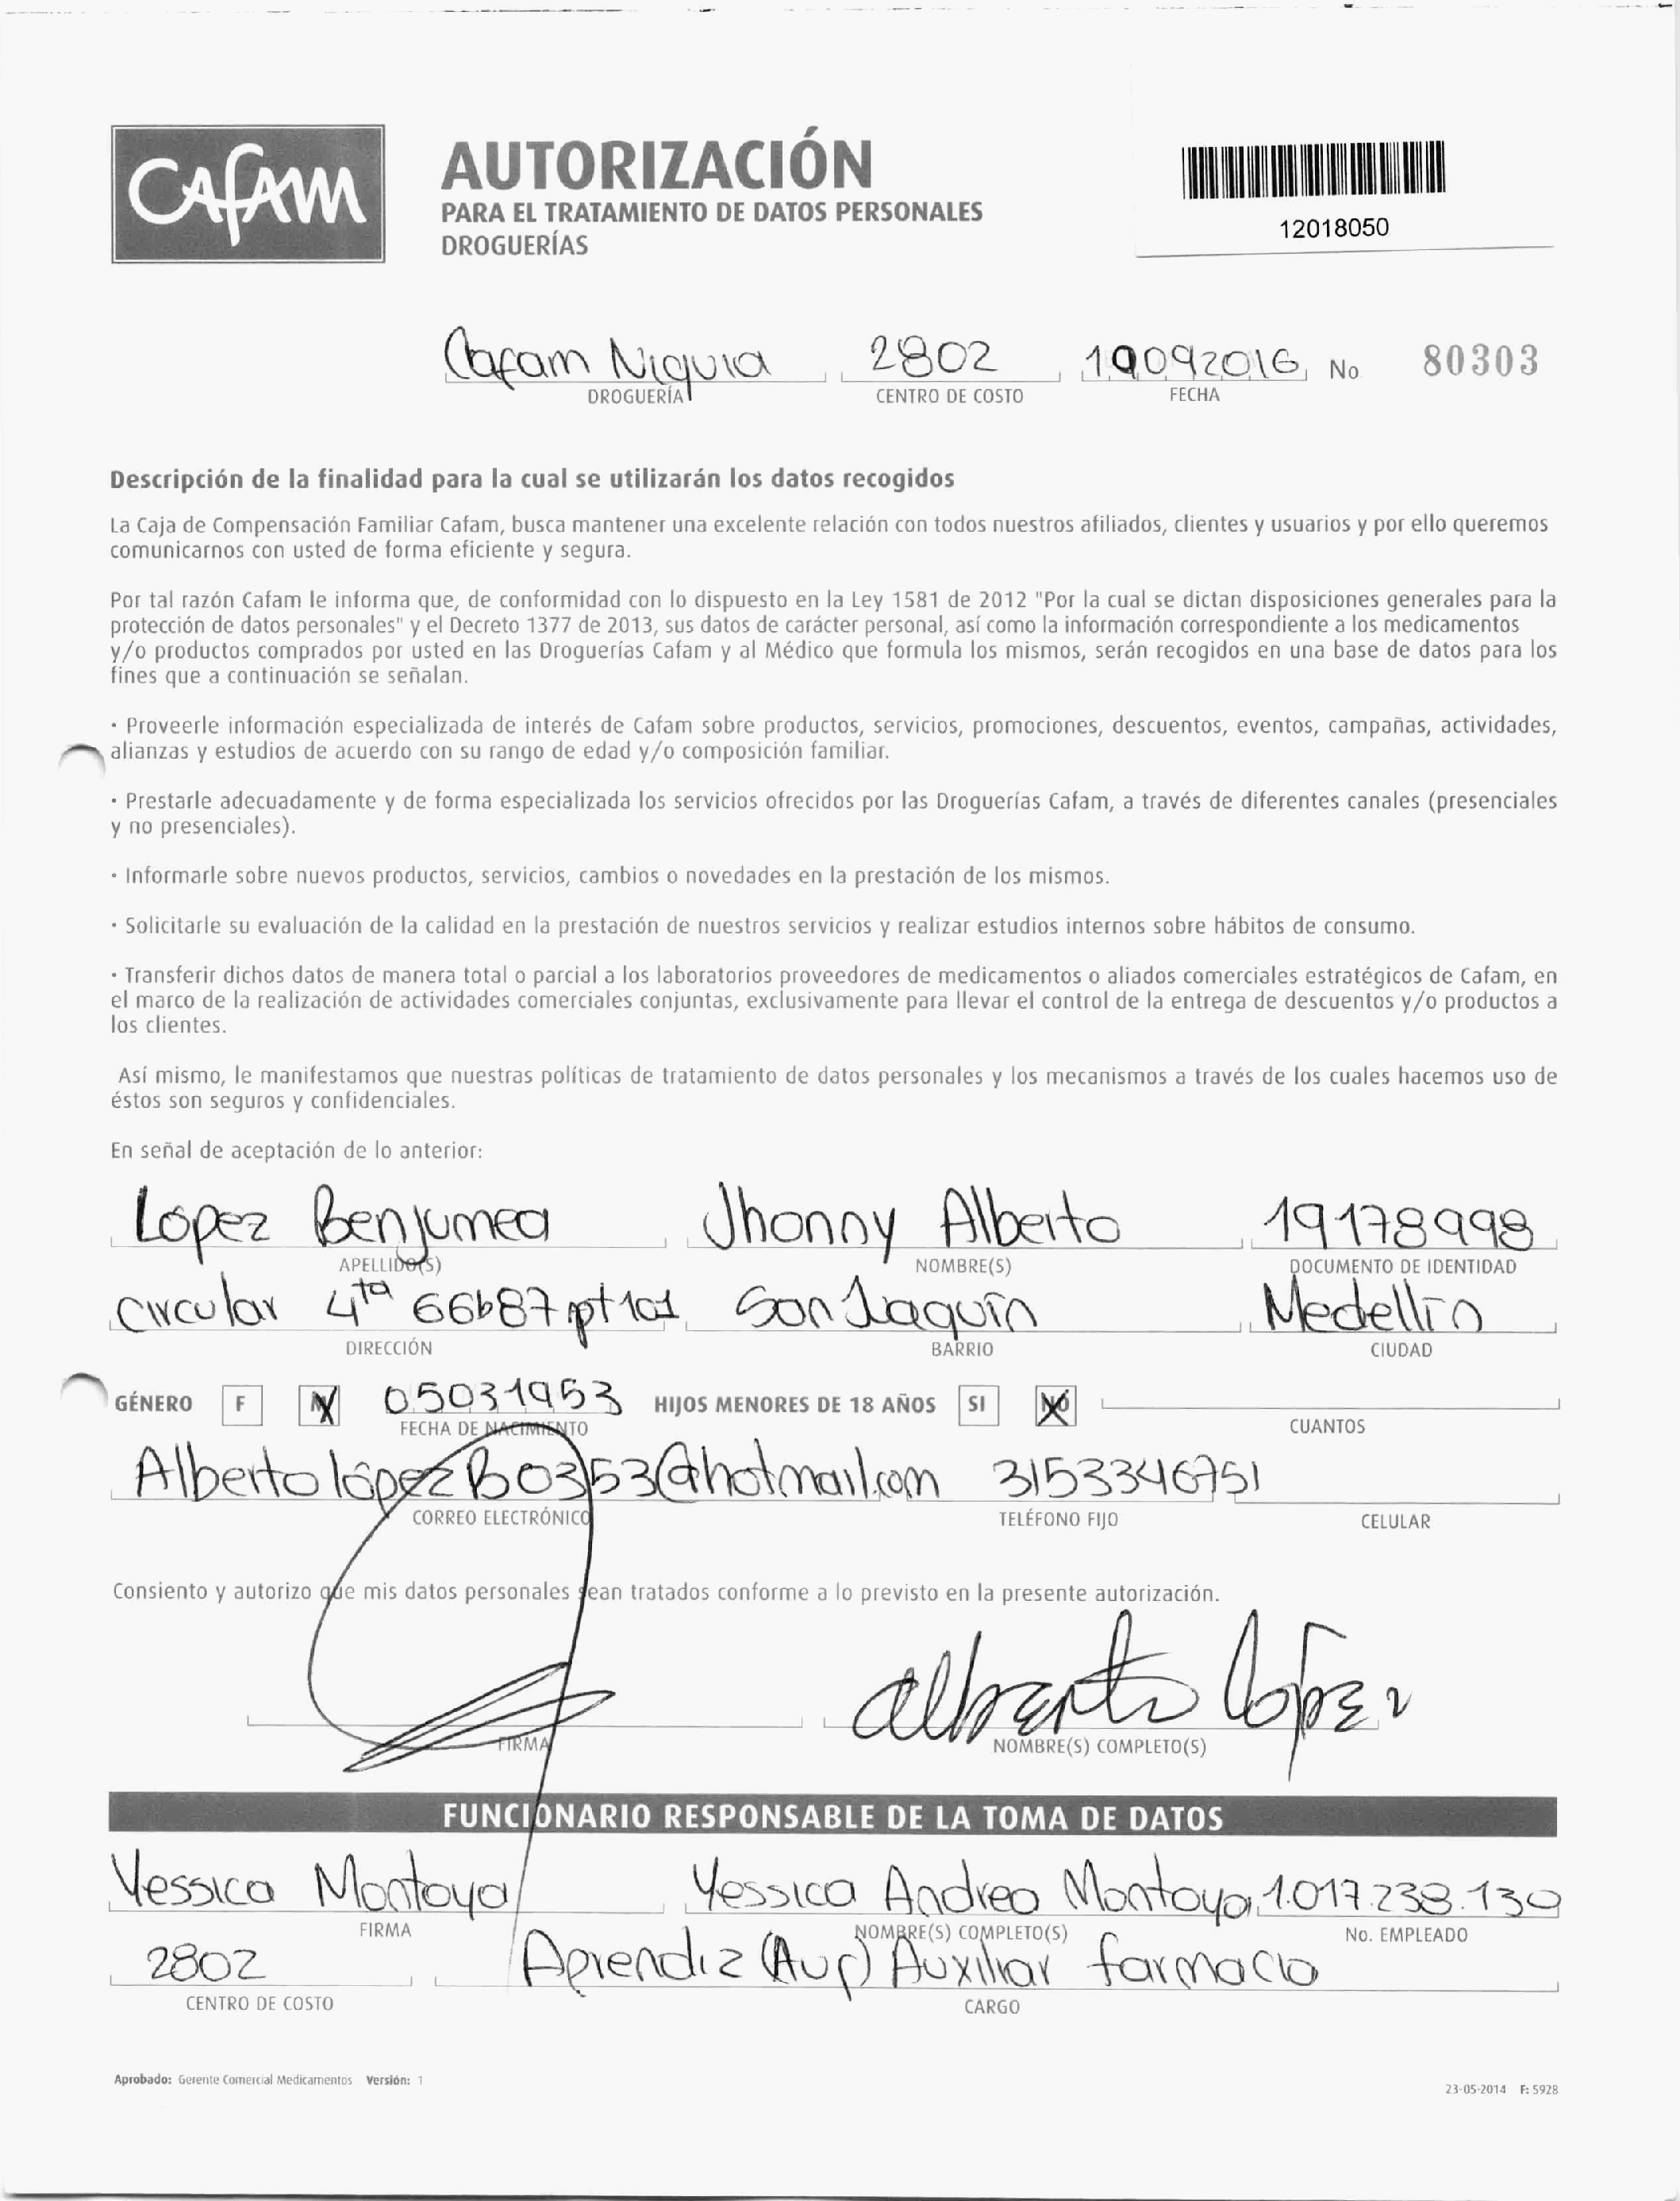 CAfAM
AUTORIZACIÓN
PARA EL TRATAMIENTO DE DATOS PERSONALES
DROGUERÍAS
12018050
Cafam Niquia 2802 19092016 No 80303
DROGUERÍA CENTRO DE COSTO FECHA
Descripción de la finalidad para la cual se utilizarán los datos recogidos
La Caja de Compensación Familiar Cafam, busca mantener una excelente relación con todos nuestros afiliados, clientes y usuarios y por ello queremos
comunicarnos con usted de forma eficiente y segura.
Por tal razón Cafam le informa que, de conformidad con lo dispuesto en la Ley 1581 de 2012 "Por la cual se dictan disposiciones generales para la
protección de datos personales" y el Decreto 1377 de 2013, sus datos de carácter personal, así como la información correspondiente a los medicamentos
y/o productos comprados por usted en las Droguerías Cafam y al Médico que formula los mismos, serán recogidos en una base de datos para los
fines que a continuación se señalan.
· Proveerle información especializada de interés de Cafam sobre productos, servicios, promociones, descuentos, eventos, campañas, actividades,
alianzas y estudios de acuerdo con su rango de edad y/o composición familiar.
· Prestarle adecuadamente y de forma especializada los servicios ofrecidos por las Droguerías Cafam, a través de diferentes canales (presenciales
y no presenciales).
· Informarle sobre nuevos productos, servicios, cambios o novedades en la prestación de los mismos.
· Solicitarle su evaluación de la calidad en la prestación de nuestros servicios y realizar estudios internos sobre hábitos de consumo.
· Transferir dichos datos de manera total o parcial a los laboratorios proveedores de medicamentos o aliados comerciales estratégicos de Cafam, en
el marco de la realización de actividades comerciales conjuntas, exclusivamente para llevar el control de la entrega de descuentos y/o productos a
los clientes.
Así mismo, le manifestamos que nuestras políticas de tratamiento de datos personales y los mecanismos a través de los cuales hacemos uso de
éstos son seguros y confidenciales.
En señal de aceptación de lo anterior:
López Benjumea Jhonny Alberto 19178998
APELLIDO(S) NOMBRE(S) DOCUMENTO DE IDENTIDAD
Circular 4ta 66b87 pt 101 San Juaquín Medellín
DIRECCIÓN BARRIO CIUDAD
GÉNERO F M 05031953 HIJOS MENORES DE 18 AÑOS SI NO
FECHA DE NACIMIENTO CUANTOS
AlbertolópezB0353@hotmail.com 3153346751
CORREO ELECTRÓNICO TELÉFONO FIJO CELULAR
Consiento y autorizo que mis datos personales sean tratados conforme a lo previsto en la presente autorización.
alberto lópez
FIRMA NOMBRE(S) COMPLETO(S)
FUNCIONARIO RESPONSABLE DE LA TOMA DE DATOS
Yessica Montoya Yessica Andrea Montoya 1.017.238.130
FIRMA NOMBRE(S) COMPLETO(S) No. EMPLEADO
2802 Aprendiz (Aup) Auxiliar farmacia
CENTRO DE COSTO CARGO
Aprobado: Gerente Comercial Medicamentos Versión: 1
23-05-2014 F: 5928